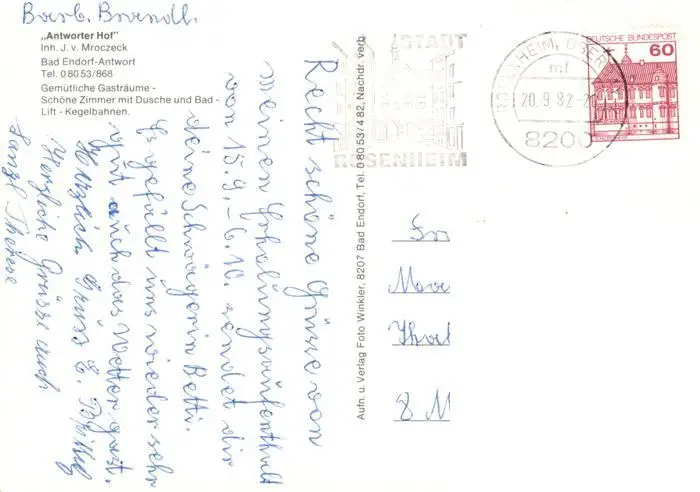 Barb. Brandl.
„Antworter Hof"
Inh. J. v. Mroczeck
Bad Endorf-Antwort
Tel. 0 80 53/868
Gemütliche Gasträume -
Schöne Zimmer mit Dusche und Bad -
Lift - Kegelbahnen.
Recht schöne Grüsse von
meinen Erholungsaufenthalt
von 15.9.-6.10. sendet dir
deine Schwägerin Betti.
Es gefällt uns wieder sehr
gut auch das Wetter
Herzlich Gruß E.
Herzliche Grüsse auch
Therese
Aufn. u. Verlag Foto Winkler, 8207 Bad Endorf, Tel. 0 80 53/4 82, Nachdr. verb.
STADT
ROSENHEIM
ROSENHEIM, OBERB
mf
20.9.82
8200
DEUTSCHE BUNDESPOST
60
8 M